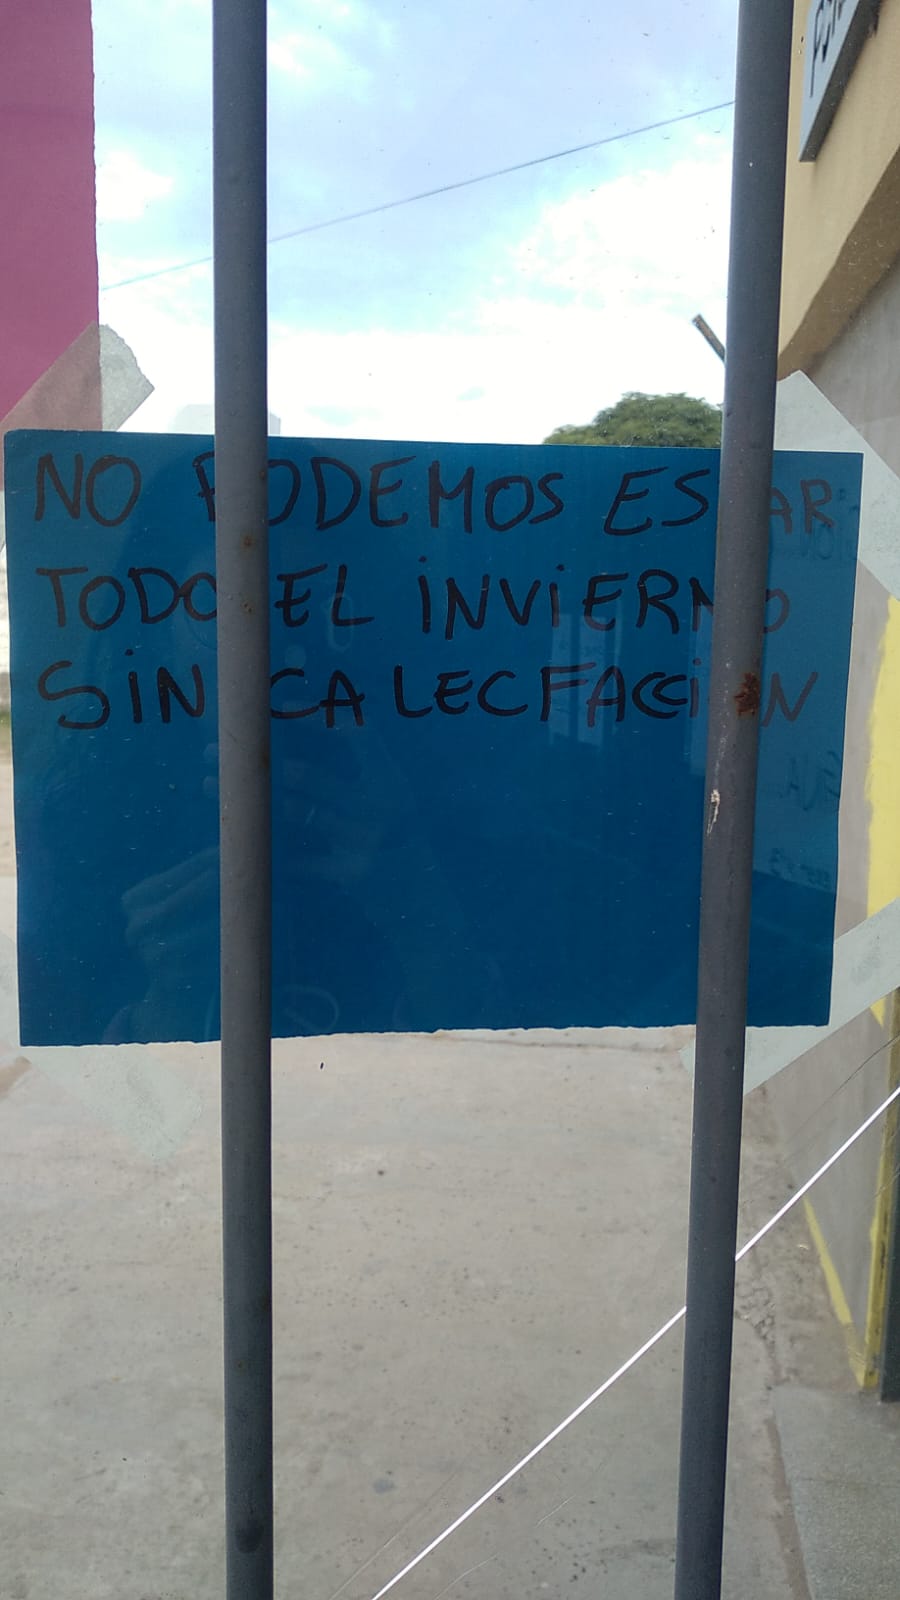 NO PODEMOS ESTAR
TODO EL INVIERNO
SIN CALECFACCIÓN